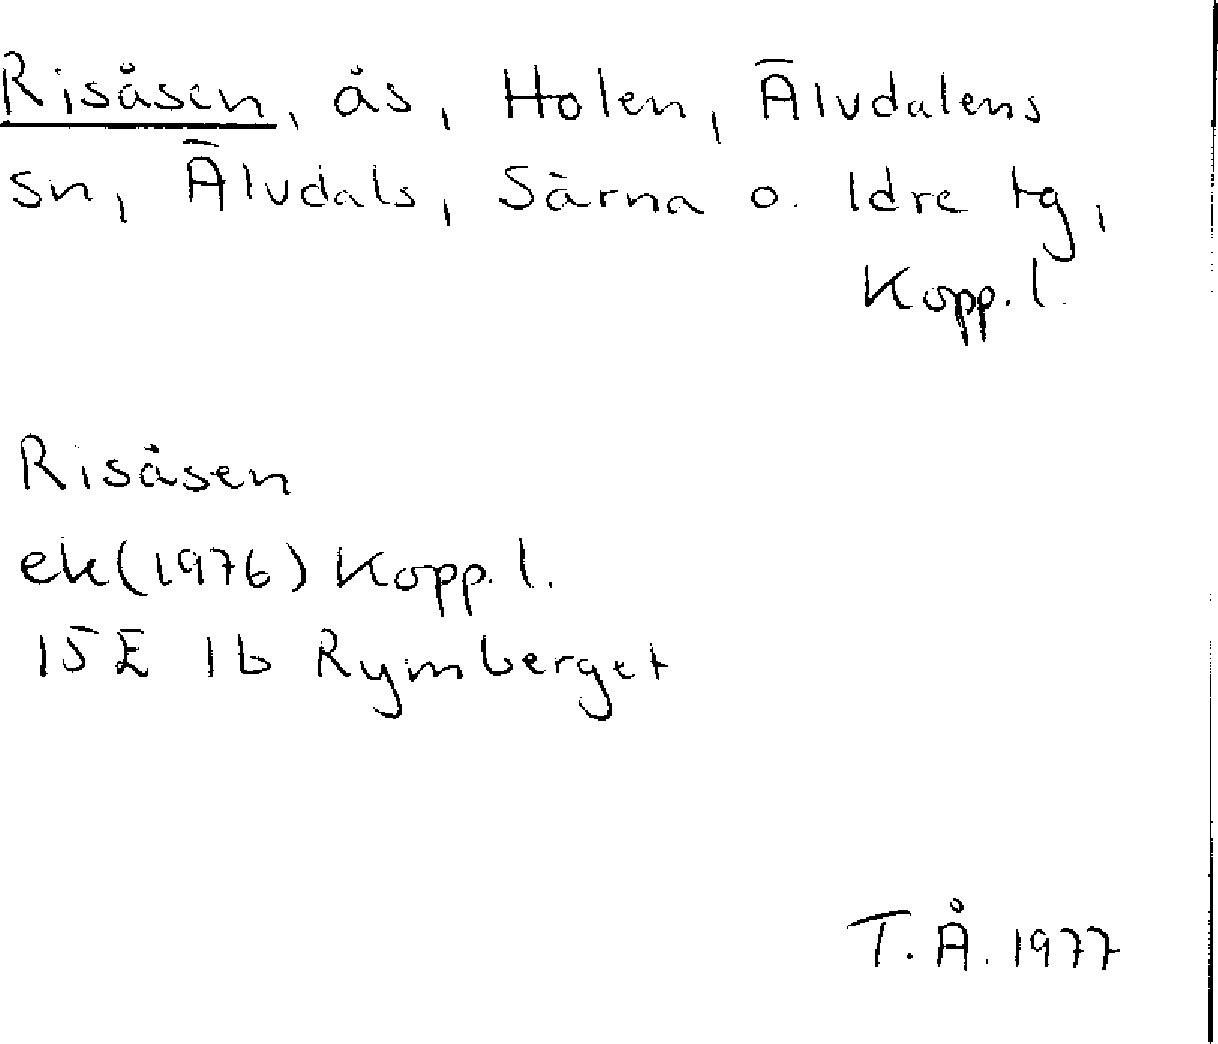 Risåsen, ås, Holen, Älvdalens
sn, Älvdals, Särna o. Idre tg,
Kopp. l.
Risåsen
ek (1976) Kopp. l.
15E 1b Rymberget
T. Å. 1977